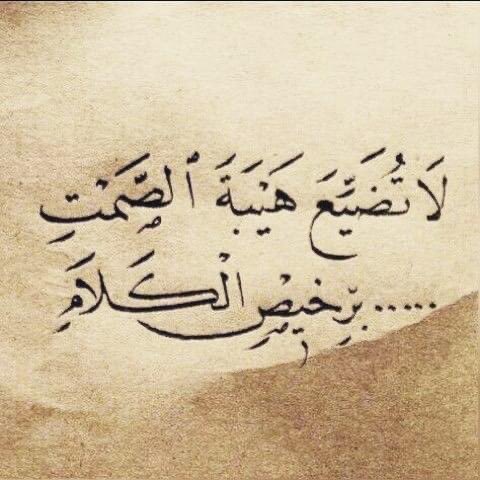 لَا تُضَيِّعَ هَيْبَةَ ٱلصَّمْتِ
..... بِرَخِيْصِ الْكَلَامِ